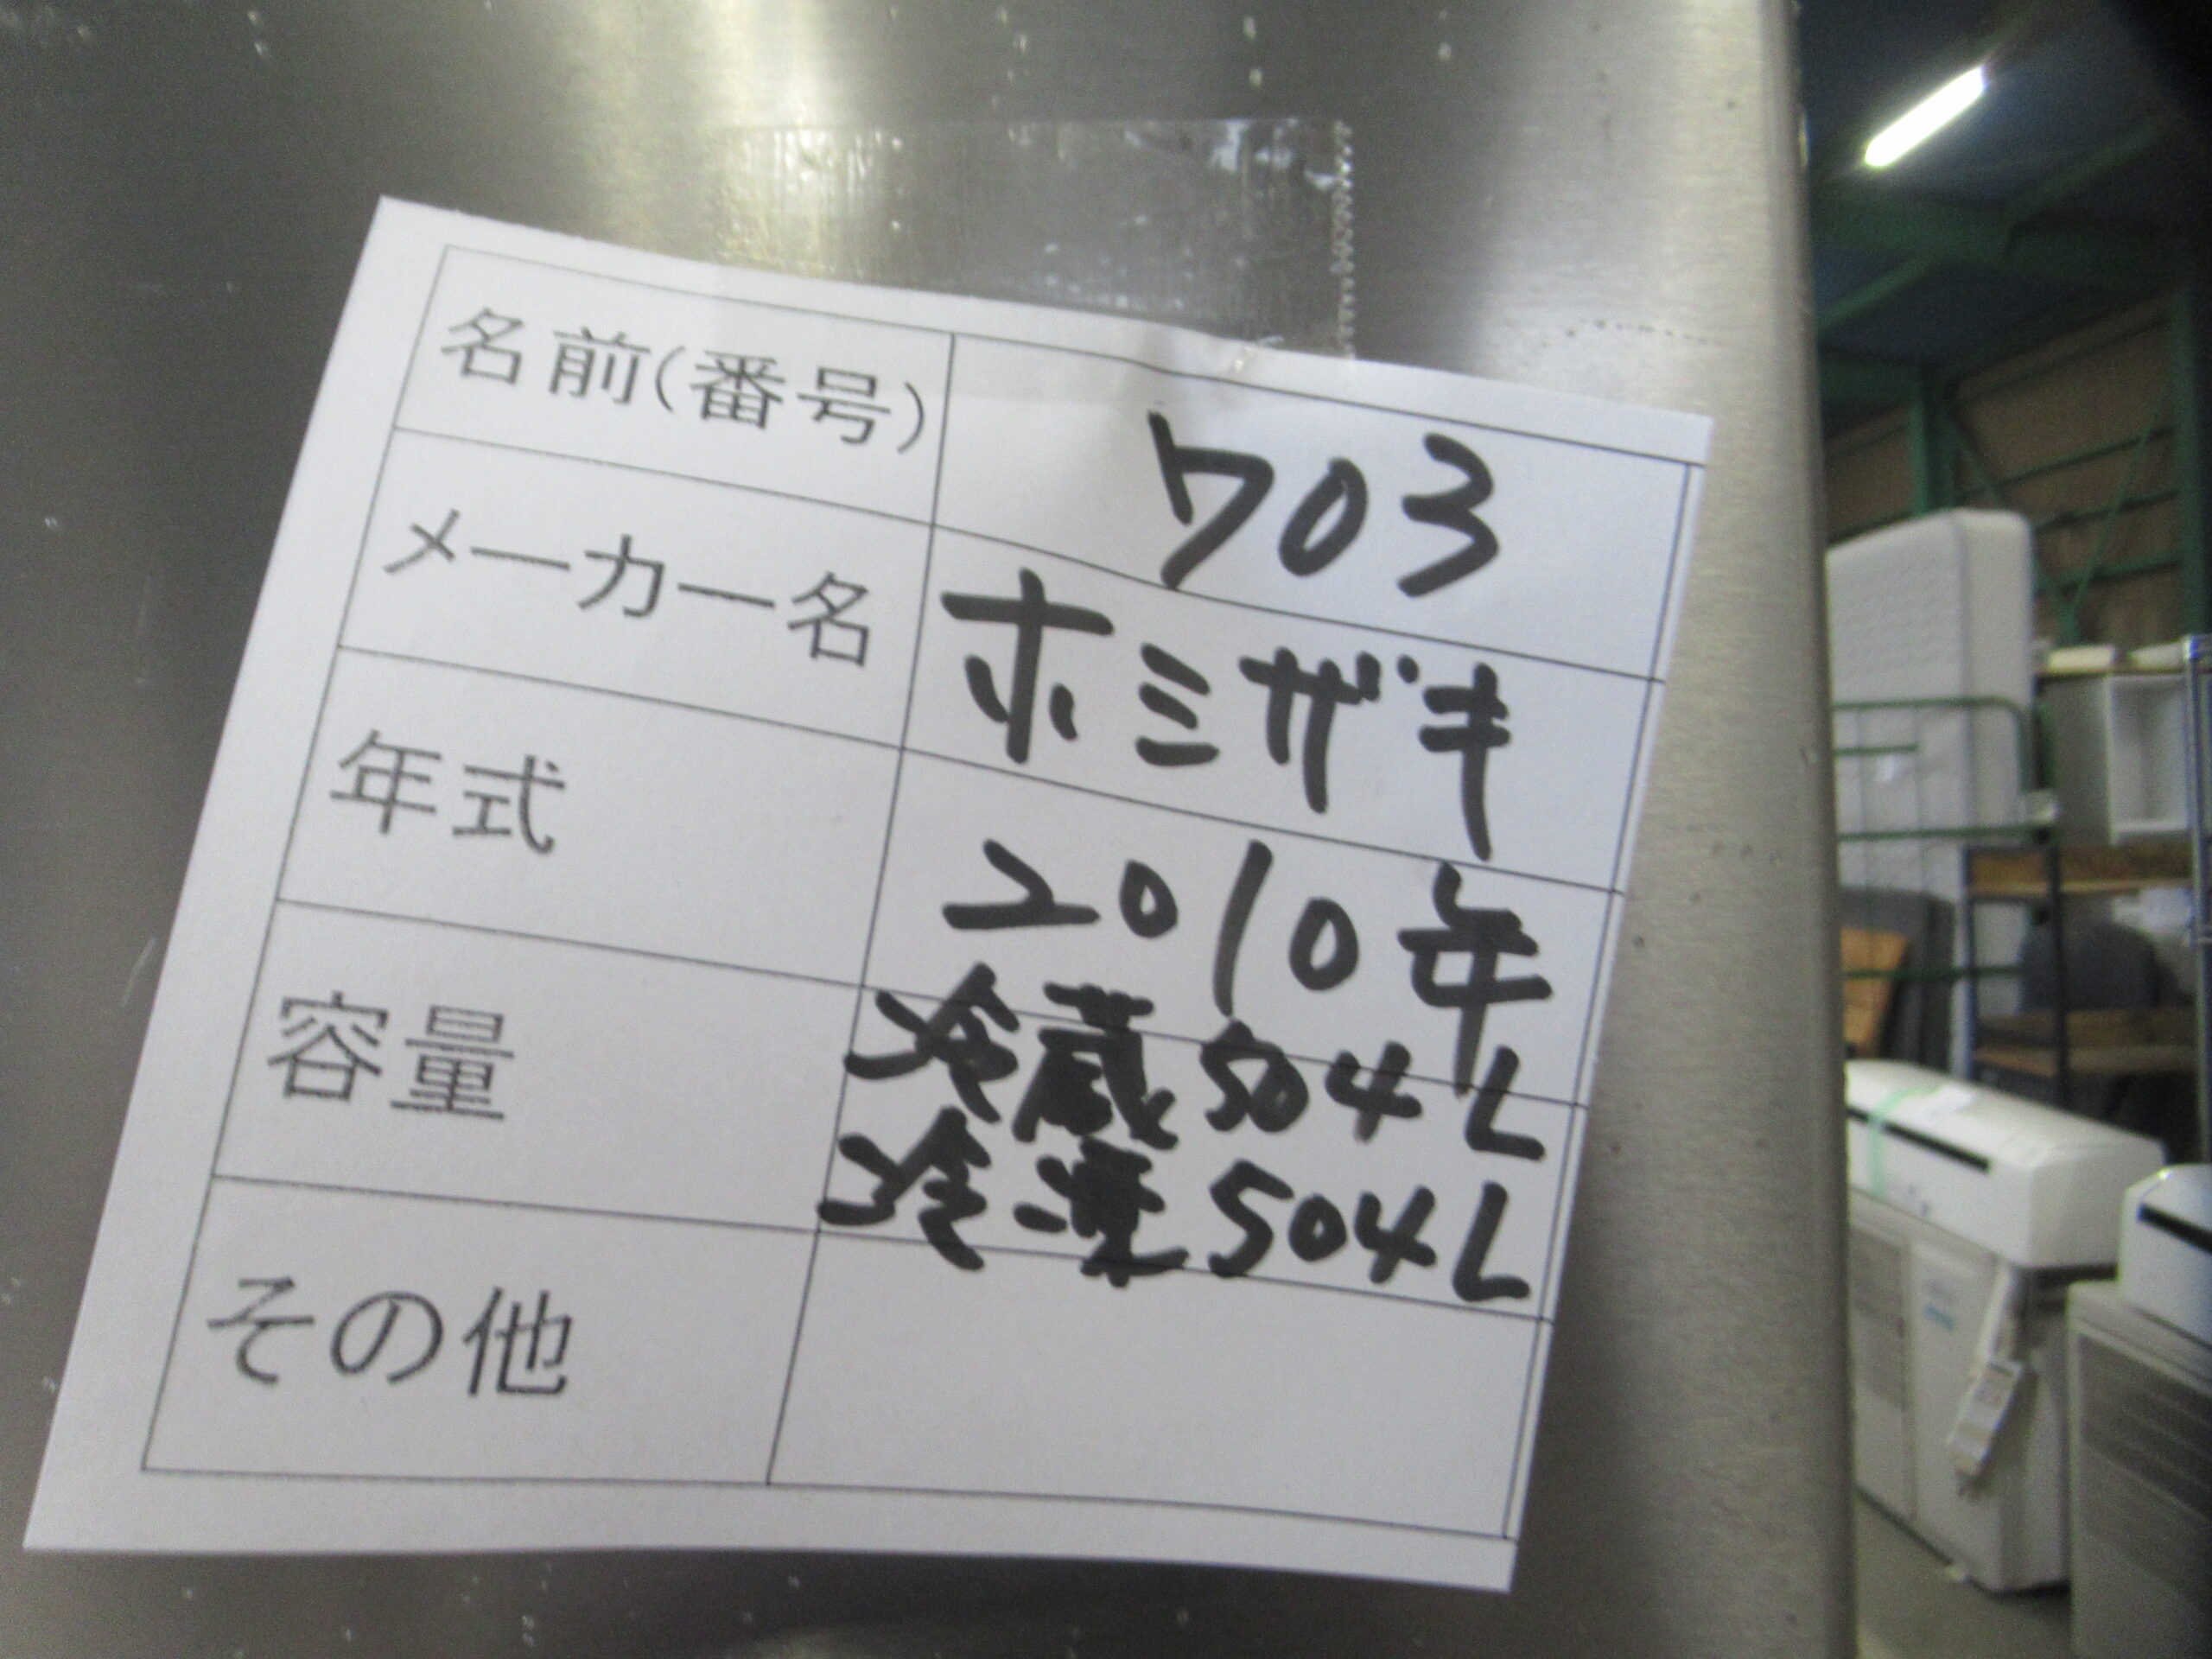 名前(番号) 703
メーカー名 ホシザキ
年式 2010年
容量 冷蔵504L
冷凍504L
その他